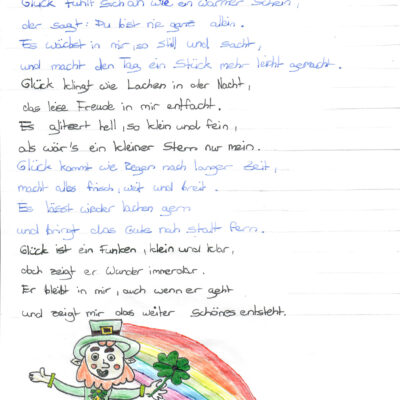 Glück fühlt sich an wie ein warmer Schein,
der sagt: Du bist nie ganz allein.
Es wächst in mir, so still und sacht,
und macht den Tag ein Stück mehr leicht gemacht.
Glück klingt wie Lachen in der Nacht,
das leise Freude in mir entfacht.
Es glitzert hell, so klein und fein,
als wär's ein kleiner Stern nur mein.
Glück kommt wie Regen nach langer Zeit,
macht alles frisch, weit und breit.
Es lässt wieder lachen gern
und bringt das Gute nah statt fern.
Glück ist ein Funken, klein und klar,
doch zeigt er Wunder immerdar.
Er bleibt in mir, auch wenn er geht
und zeigt mir das weiter Schönes entsteht.